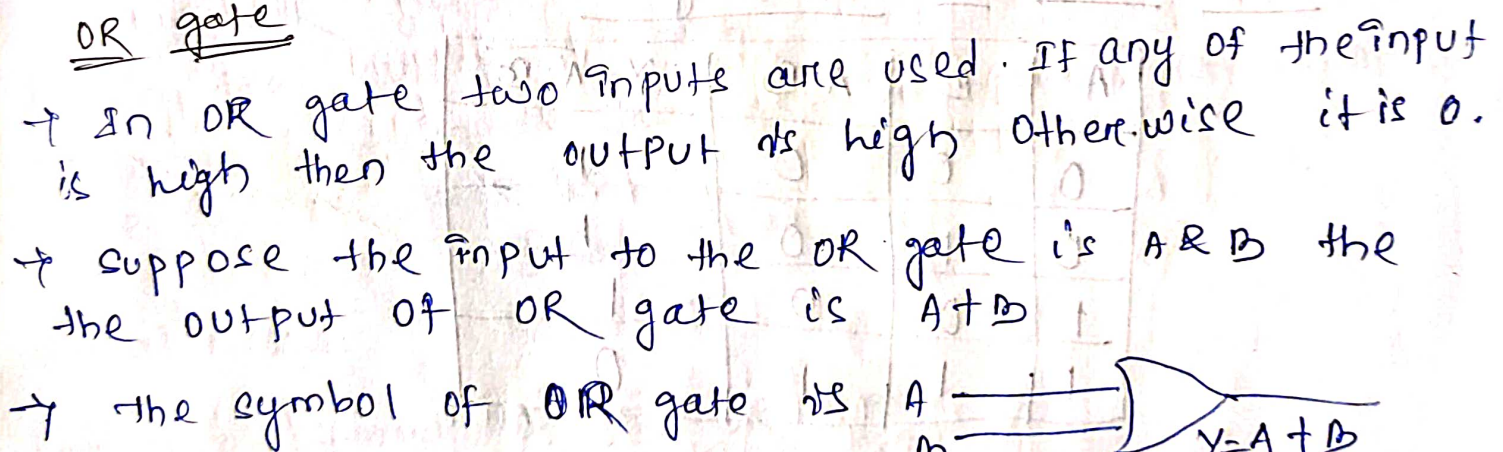 OR gate
→ In OR gate two inputs are used. If any of the input
is high then the output is high otherwise it is 0.
→ suppose the input to the OR gate is A & B the
the output of OR gate is A+B
→ The symbol of OR gate is A
B
Y=A+B